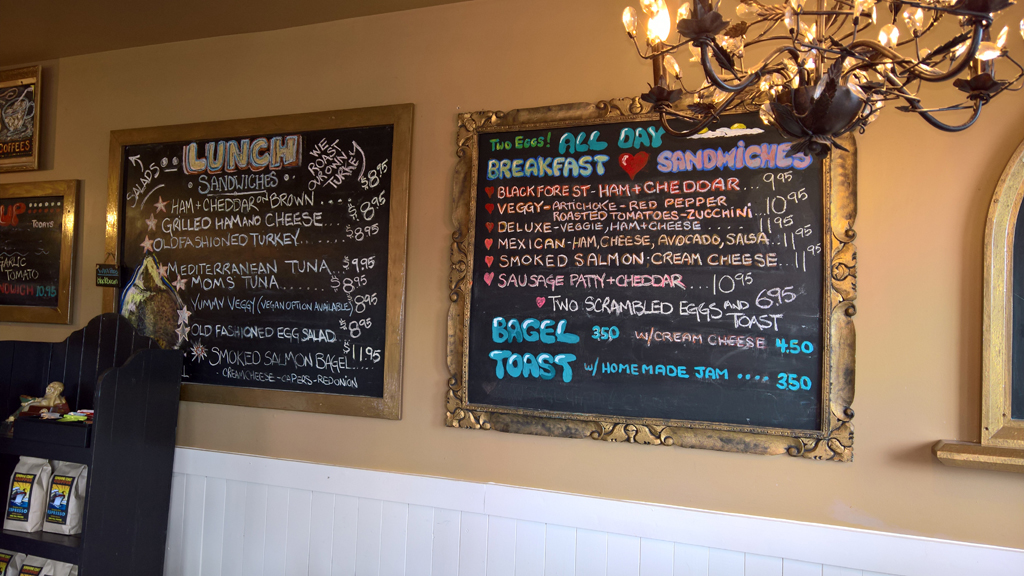 COFFEES
UP
TODAYS
GARLIC
TOMATO
SANDWICH 10.95
SALADS
LUNCH
SANDWICHES
WE
ROAST
OUR OWN
TURKEY
HAM + CHEDDAR ON BROWN .... $8.95
GRILLED HAM AND CHEESE $8.95
OLD FASHIONED TURKEY....... $8.95
MEDITERRANEAN TUNA... $9.95
MOM'S TUNA..... $8.95
YUMAN VEGGY (VEGAN OPTION AVAILABLE) $8.95
OLD FASHIONED EGG SALAD $8.95
SMOKED SALMON BAGEL... $11.95
CREAM CHEESE - CAPERS - RED ONION
TWO EGGS! ALL DAY
BREAKFAST SANDWICHES
BLACK FOREST - HAM + CHEDDAR... 9.95
VEGGY - ARTICHOKE - RED PEPPER
ROASTED TOMATOES - ZUCCHINI... 10.95
DELUXE - VEGGIE, HAM + CHEESE...... 11.95
MEXICAN - HAM, CHEESE, AVOCADO, SALSA... 11.95
SMOKED SALMON, CREAM CHEESE... 11.95
SAUSAGE PATTY + CHEDDAR ... 10.95
TWO SCRAMBLED EGGS AND 6.95
TOAST
BAGEL 3.50 W/ CREAM CHEESE 4.50
TOAST W/ HOMEMADE JAM .... 3.50
ESPRESSO